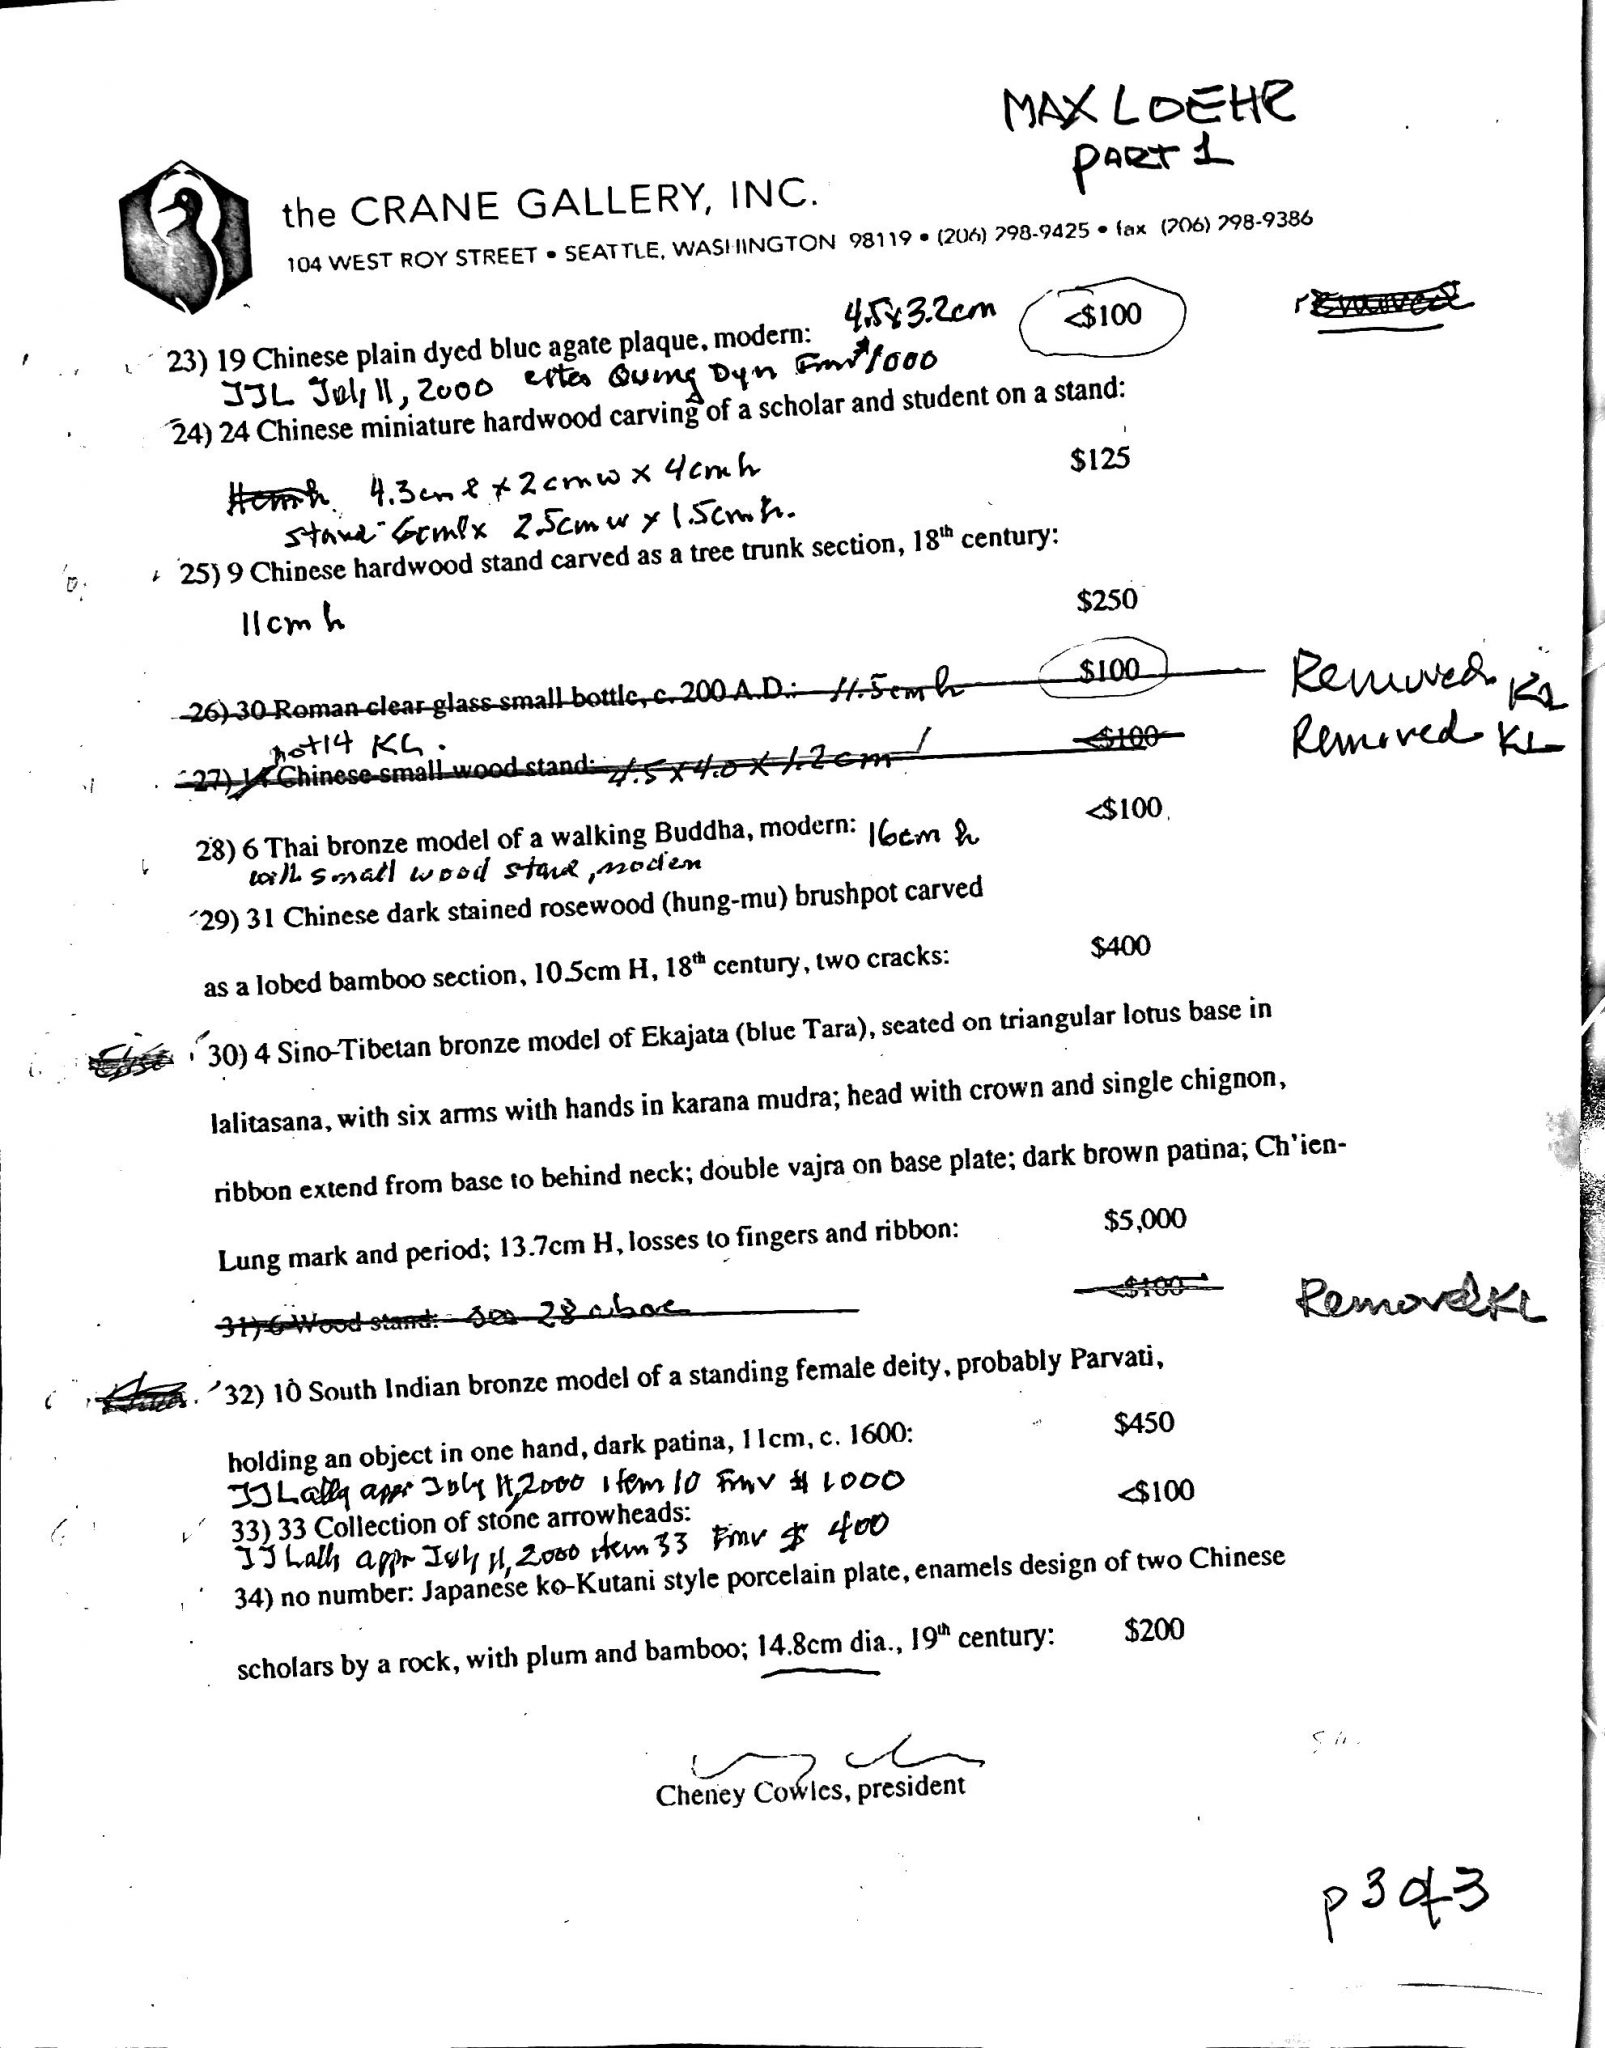 MAX LOEHR
PART 1
the CRANE GALLERY, INC.
104 WEST ROY STREET • SEATTLE, WASHINGTON 98119 • (206) 298-9425 • fax (206) 298-9386
4.5x3.2cm <$100 removed
23) 19 Chinese plain dyed blue agate plaque, modern:
JJL July 11, 2000 Qung Dyn Fmv $1000
24) 24 Chinese miniature hardwood carving of a scholar and student on a stand:
$125
4.3cm l x 2cm w x 4cm h
stand - 6cm l x 2.5cm w x 1.5cm h.
25) 9 Chinese hardwood stand carved as a tree trunk section, 18th century:
11cm h $250
26) 30 Roman clear glass small bottle, c. 200 A.D.: 11.5cm h $100 Removed KL
not 14 KL.
27) 14 Chinese small wood stand: 4.5 x 4.0 x 1.2cm <$100 Removed KL
28) 6 Thai bronze model of a walking Buddha, modern: 16cm h <$100
with small wood stand, modern
29) 31 Chinese dark stained rosewood (hung-mu) brushpot carved
as a lobed bamboo section, 10.5cm H, 18th century, two cracks: $400
30) 4 Sino-Tibetan bronze model of Ekajata (blue Tara), seated on triangular lotus base in
lalitasana, with six arms with hands in karana mudra; head with crown and single chignon,
ribbon extend from base to behind neck; double vajra on base plate; dark brown patina; Ch'ien-
Lung mark and period; 13.7cm H, losses to fingers and ribbon: $5,000
31) 6 Wood stand: see 28 above <$100 Removed KL
32) 10 South Indian bronze model of a standing female deity, probably Parvati,
holding an object in one hand, dark patina, 11cm, c. 1600: $450
JJ Lally appr July 11, 2000 item 10 Fmv $ 1000
33) 33 Collection of stone arrowheads: <$100
JJ Lally appr July 11, 2000 item 33 Fmv $ 400
34) no number: Japanese ko-Kutani style porcelain plate, enamels design of two Chinese
scholars by a rock, with plum and bamboo; 14.8cm dia., 19th century: $200
Cheney Cowles, president
p 3 of 3